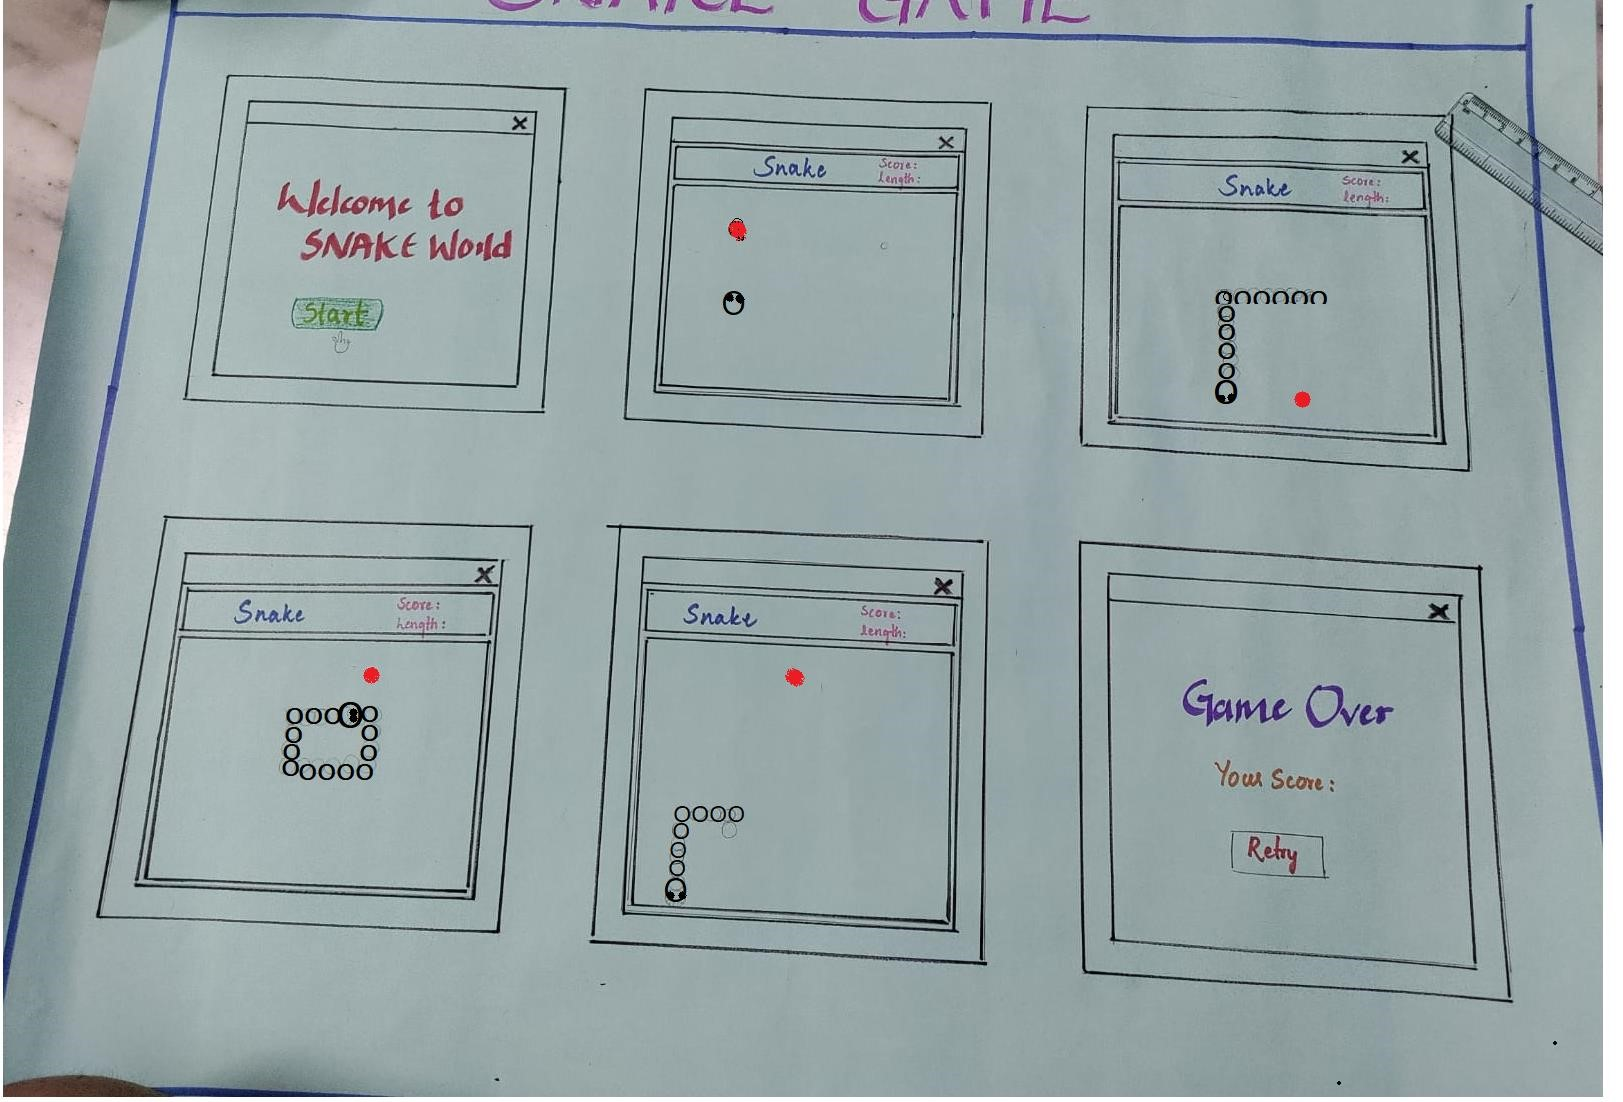 SNAKE GAME
X
Welcome to
SNAKE World
Start
X
Snake
Score:
Length:
X
Snake
Score:
length:
X
Snake
Score:
Length:
X
Snake
Score:
length:
X
Game Over
Your Score:
Retry